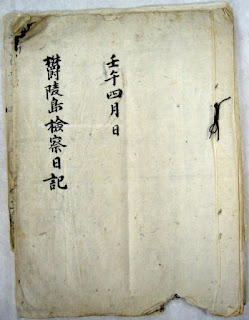 壬午四月 日
欝陵島檢察日記